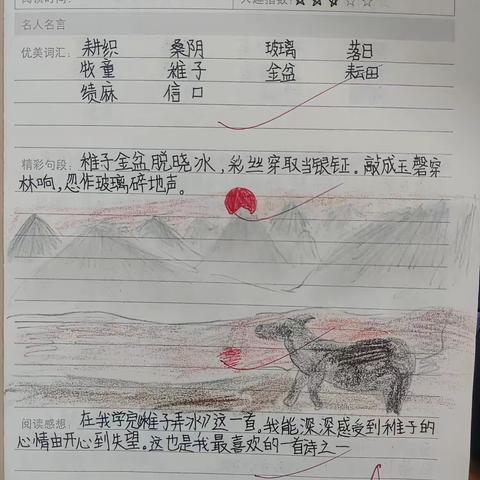 阅读时间：
兴趣指数：☆☆☆☆☆
名人名言
优美词汇： 耕织 桑阴 玻璃 落日
牧童 稚子 金盆 耘田
绩麻 信口
精彩句段： 稚子金盆脱晓冰，彩丝穿取当银钲。敲成玉磬穿
林响，忽作玻璃碎地声。
阅读感想： 在我学完《稚子弄冰》这一首。我能深深感受到稚子的
心情由开心到失望。这也是我最喜欢的一首诗之一